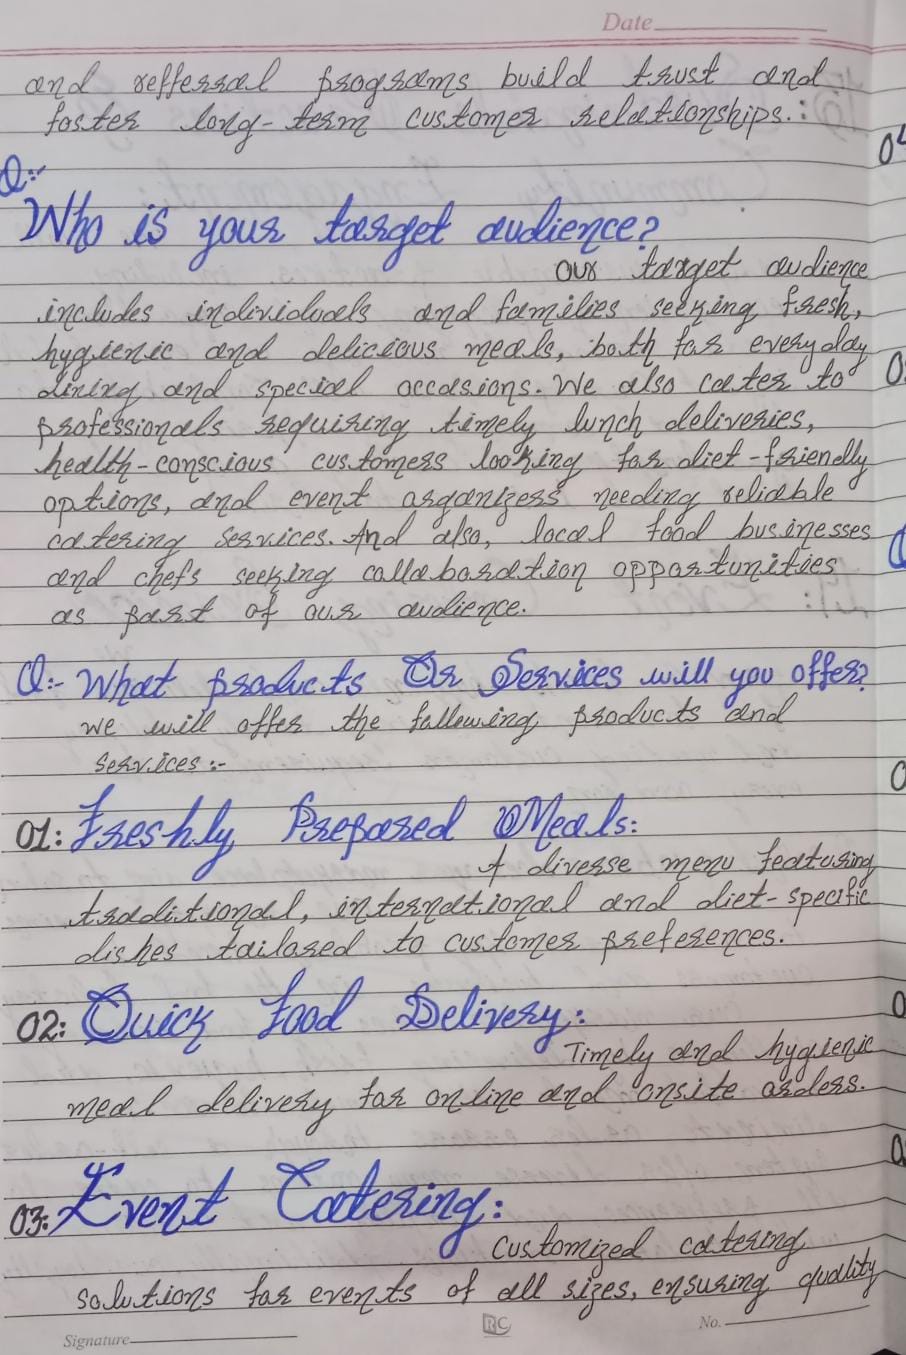 Date
and refferral programs build trust and
foster long-term customer relationships.:
Q:-
Who is your target audience?
our target audience
includes individuals and families seeking fresh,
hygienic and delicious meals, both for everyday
dining and special occasions. We also cater to
professionals requiring timely lunch deliveries,
health-conscious customers looking for diet-friendly
options, and event organizers needing reliable
catering services. And also, local food businesses
and chefs seeking collaboration opportunities
as part of our audience.
Q:- What products Or Services will you offer?
we will offer the following products and
services:-
01: Freshly Prepared Meals:
A diverse menu featuring
traditional, international and diet-specific
dishes tailored to customer preferences.
02: Quick Food Delivery:
Timely and hygienic
meal delivery for online and onsite orders.
03: Event Catering:
customized catering
solutions for events of all sizes, ensuring quality
Signature
RC
No.